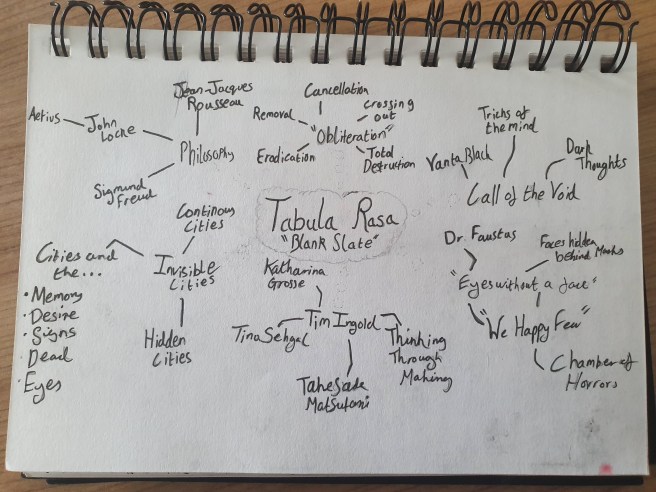 Jean-Jacques
Rousseau
Aetius
John
Locke
Philosophy
Sigmund
Freud
Cancellation
Removal
Crossing
out
"Obliteration"
Eradication
Total
Detruction
Tricks of
the mind
Vanta Black
Dark
Thoughts
Call of the Void
Tabula Rasa
"Blank Slate"
Continous
Cities
Cities and
the...
Invisible
Cities
• Memory
• Desire
• Signs
Dead
• Eyes
Hidden
Cities
Katharina
Grosse
Tina Sehgal
Tim Ingold
Thinking
Through
Making
Dr. Faustas
Faces hidden
behind Masks
"Eyes without a face"
"We Happy Few"
Chamber of
Horrors